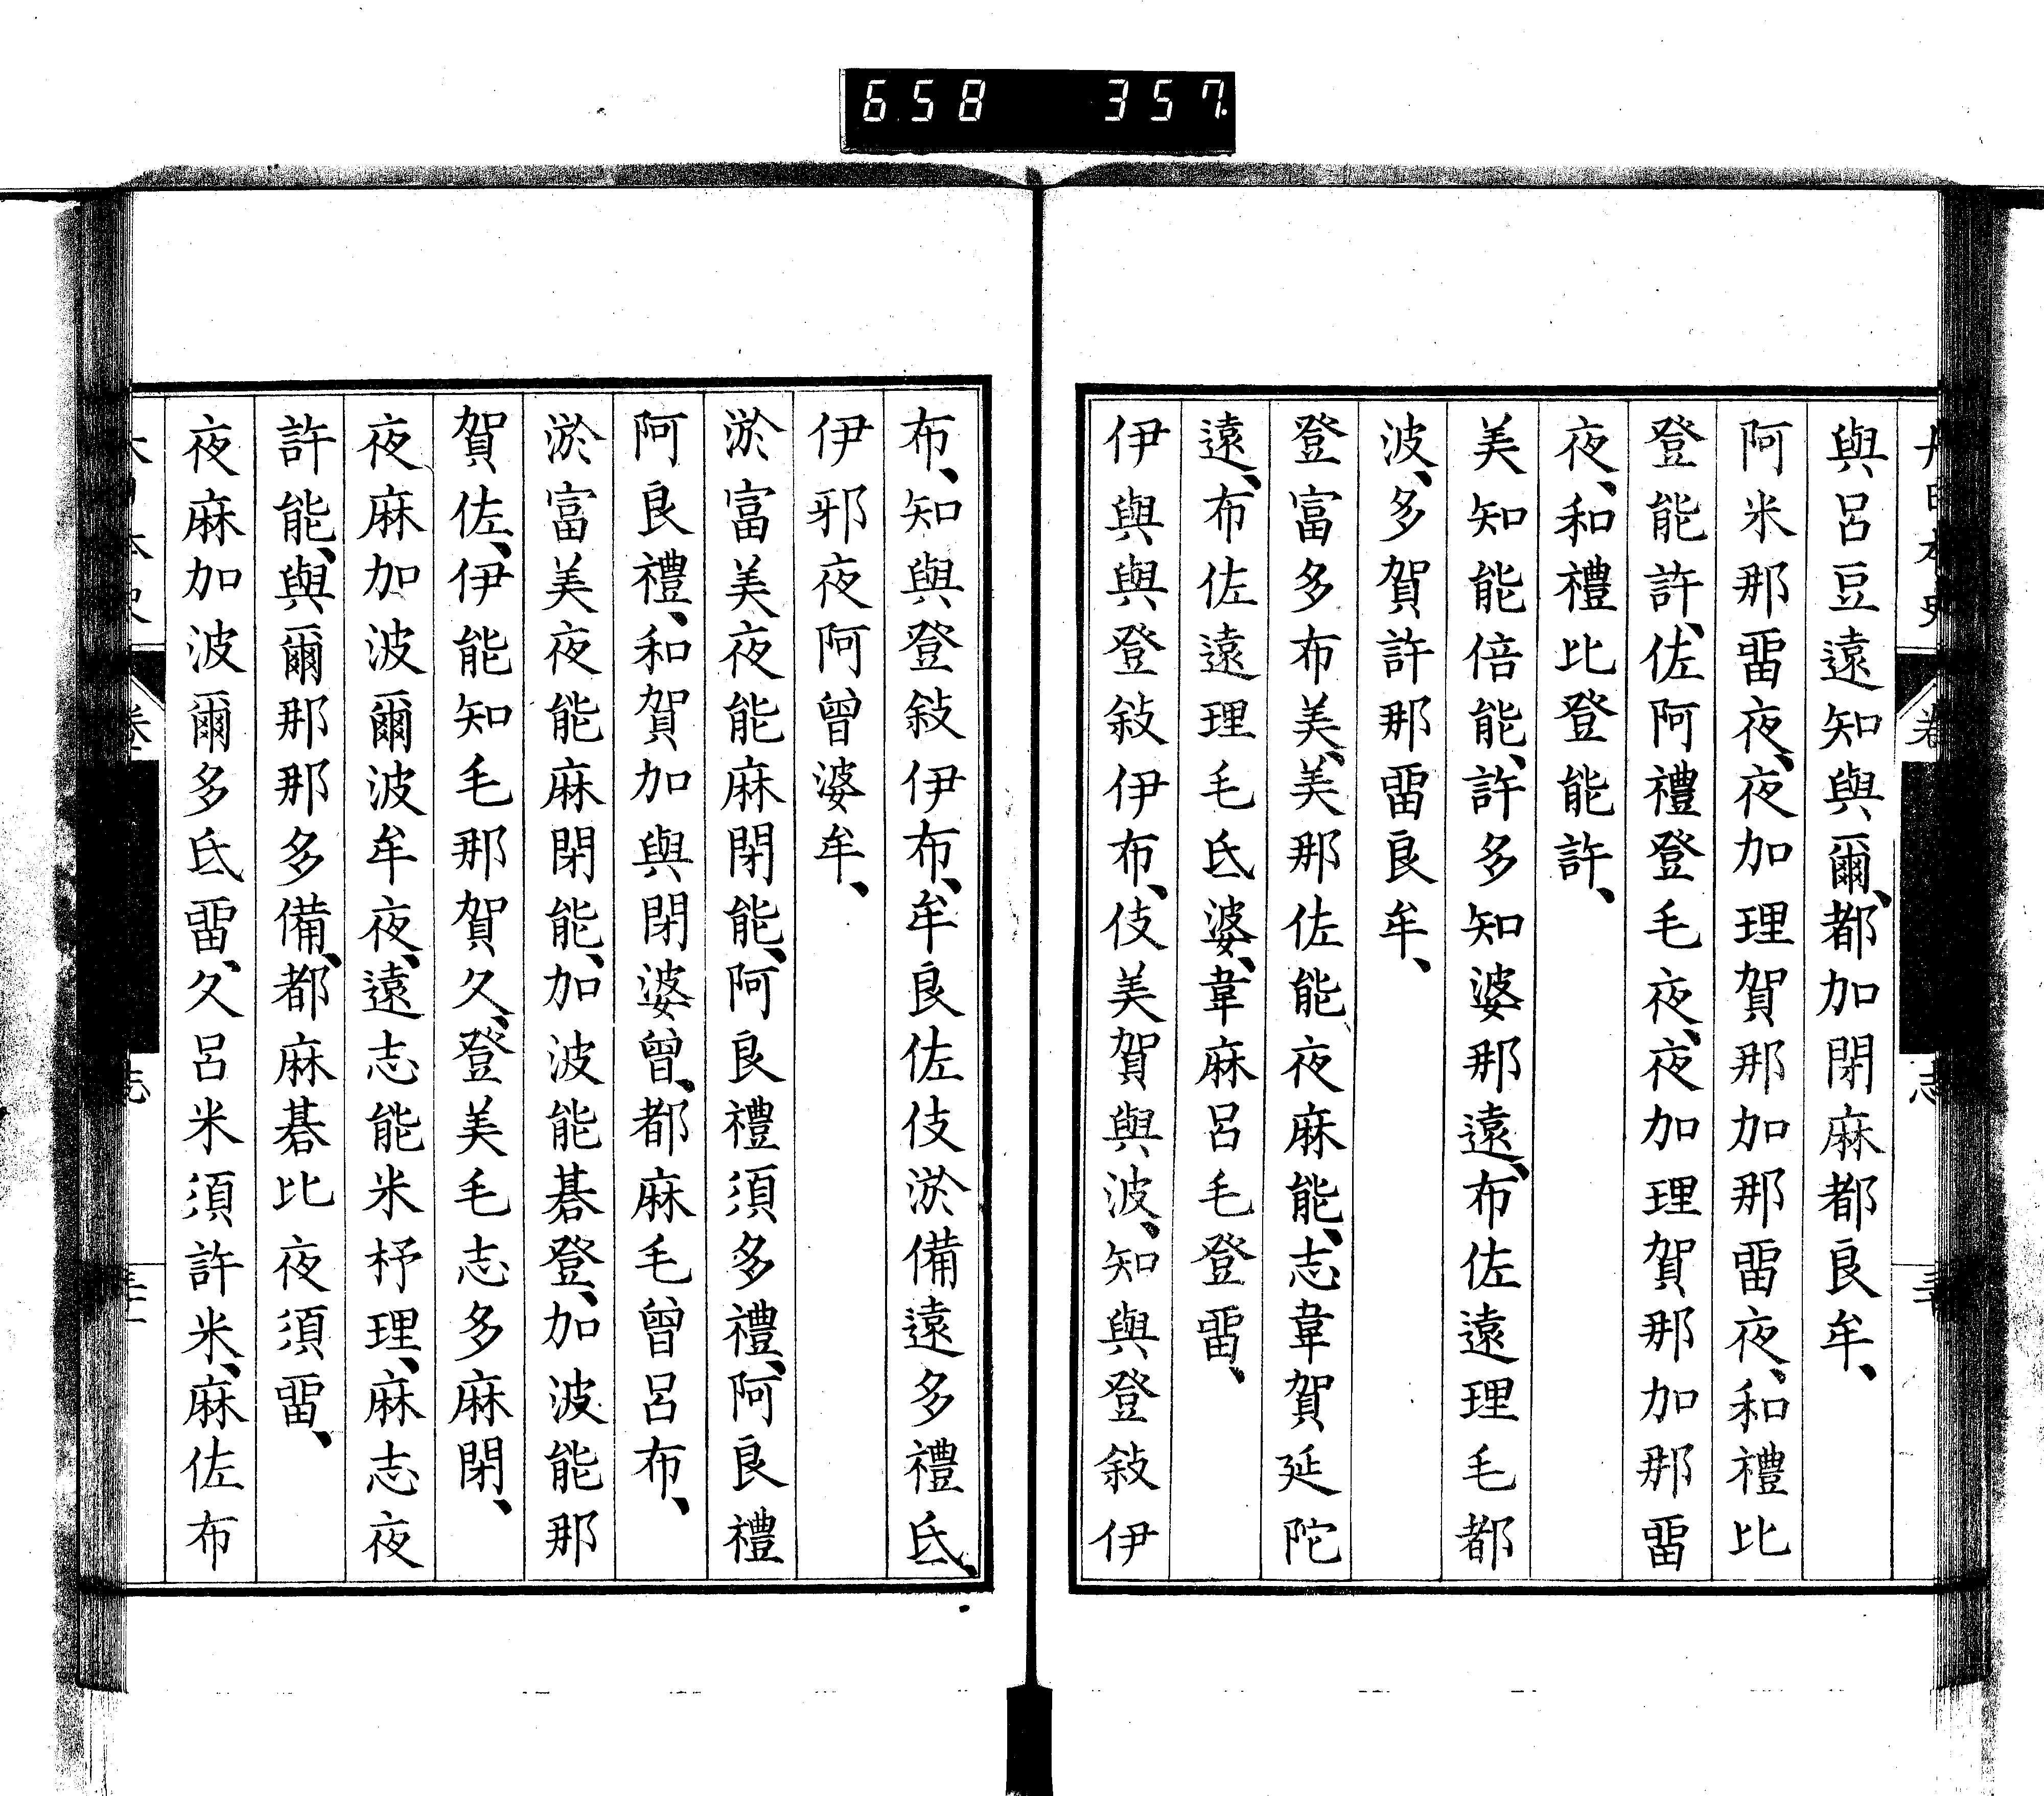 658 357
與呂豆遠知與爾、都加閉麻都良牟、
阿米那畱夜、夜加理賀那加那畱夜、和禮比
登能許、佐阿禮登毛夜、夜加理賀那加那畱
夜、和禮比登能許、
美知能倍能、許多知婆那遠、布佐遠理毛都
波、多賀許那畱良牟、
登富多布美、美那佐能夜麻能、志韋賀延陀
遠、布佐遠理毛氐婆、韋麻呂毛登畱、
伊與與登敍伊布、伎美賀與波、知與登敍伊
布、知與登敍伊布、牟良佐伎淤備遠多禮氐、
伊邪夜阿曾婆牟、
淤富美夜能麻閉能、阿良禮須多禮、阿良禮
阿良禮、和賀加與閉婆曾、都麻毛曾呂布、
淤富美夜能麻閉能、加波能碁登、加波能那
賀佐、伊能知毛那賀久、登美毛志多麻閉、
夜麻加波爾波牟夜、遠志能米杼理、麻志夜
許能、與爾那那多備、都麻碁比夜須畱、
夜麻加波爾多氐畱、久呂米須許米、麻佐布